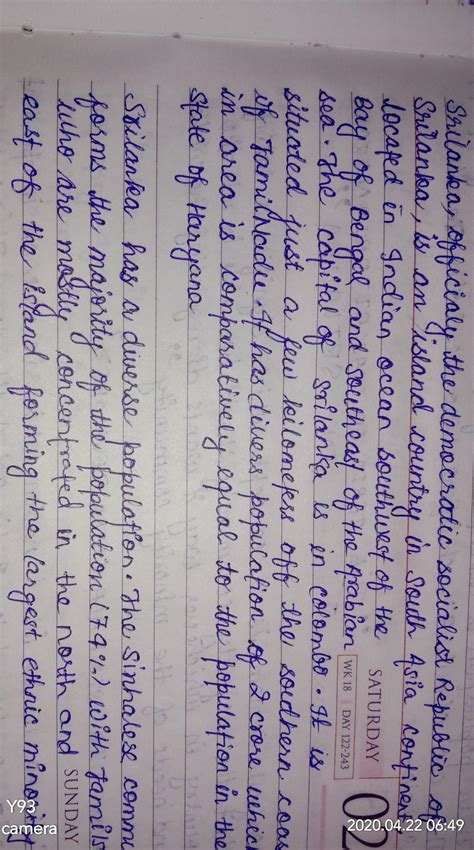 Srilanka, officialy the democratic socialist Republic of
Srilanka, is an island country in South Asia continen
locatd in Indian ocean southwest of the
Bay of Bengal and southeast of the Arabian
sea. The capital of Srilanka is in colombo. It is
situated just a few kilometers off the southern coas
of Tamilnadu. It has divers population of 2 crore which
in area is comparatively equal to the population in the
state of Haryana
Srilanka has a diverse population. The Sinhalese comm
forms the majority of the population (74%) with Tamils
who are mostly concentrated in the north and
east of the island forming the largest ethnic minority
SATURDAY
WK 18 | DAY 122-243
02
SUNDAY
Y93
camera
2020.04.22 06:49